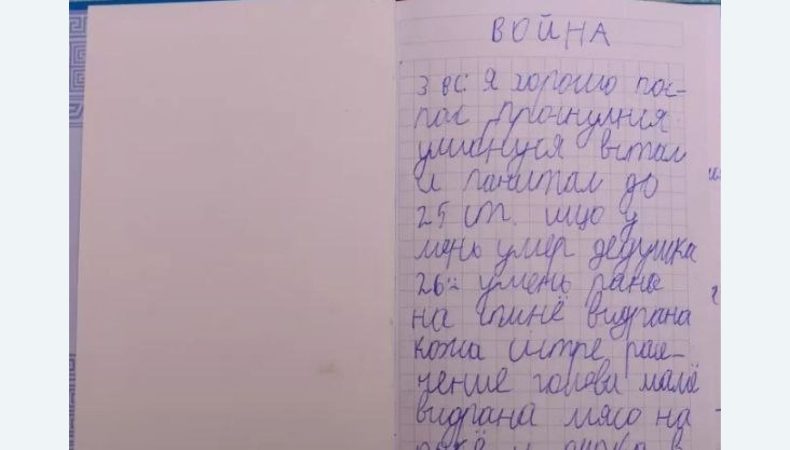 ВОЙНА
3 вс. Я хорошо пос-
пас проснулися
уликнуся встал
и панитал до
25 ст. ищо у
мень умер дедушка
26: умень рана
на спинё видрана
кожа систре рас-
чение голова мамё
видрана мясо на
рокё и дирка в